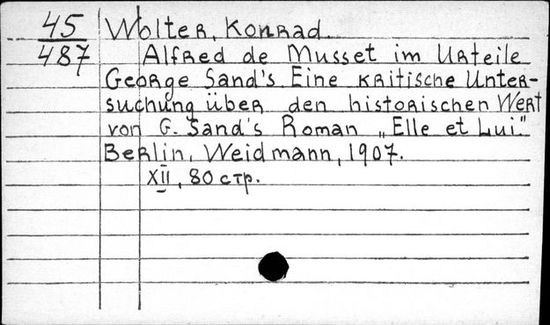 45 Wolter, Konrad.
487 Alfred de Musset im Urteile
George Sand's. Eine kritische Unter-
suchung über den historischen Wert
von G. Sand's Roman „Elle et Lui".
Berlin, Weidmann, 1907.
XII, 80 стр.